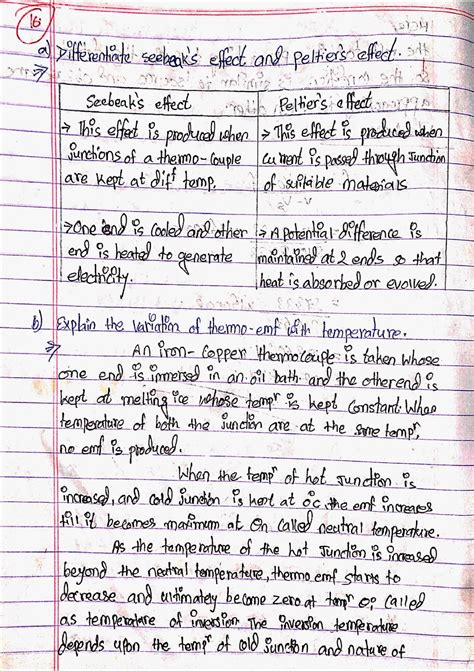 16
a) Differentiate seebeak's effect and peltier's effect.
⇒
Seebeak's effect
→ This effect is produced when
junctions of a thermo-couple
are kept at dif^t temp.
→ One end is cooled and other
end is heated to generate
electricity.
Peltier's effect
→ This effect is produced when
current is passed through junction
of suitable materials
→ A potential difference is
maintained at 2 ends so that
heat is absorbed or evolved.
b) Explain the variation of thermo-emf with temperature.
⇒
An iron-copper thermocouple is taken whose
one end is immersed in an oil bath and the other end is
kept at melting ice whose temp^r is kept constant. When
temperature of both the junction are at the same temp^r,
no emf is produced.
When the temp^r of hot junction is
increased, and cold junction is kept at 0°c, the emf increases
till it becomes maximum at θn called neutral temperature.
As the temperature of the hot junction is increased
beyond the neutral temperature, thermo emf starts to
decrease and ultimately become zero at temp^r θi called
as temperature of inversion. The inversion temperature
depends upon the temp^r of cold junction and nature of